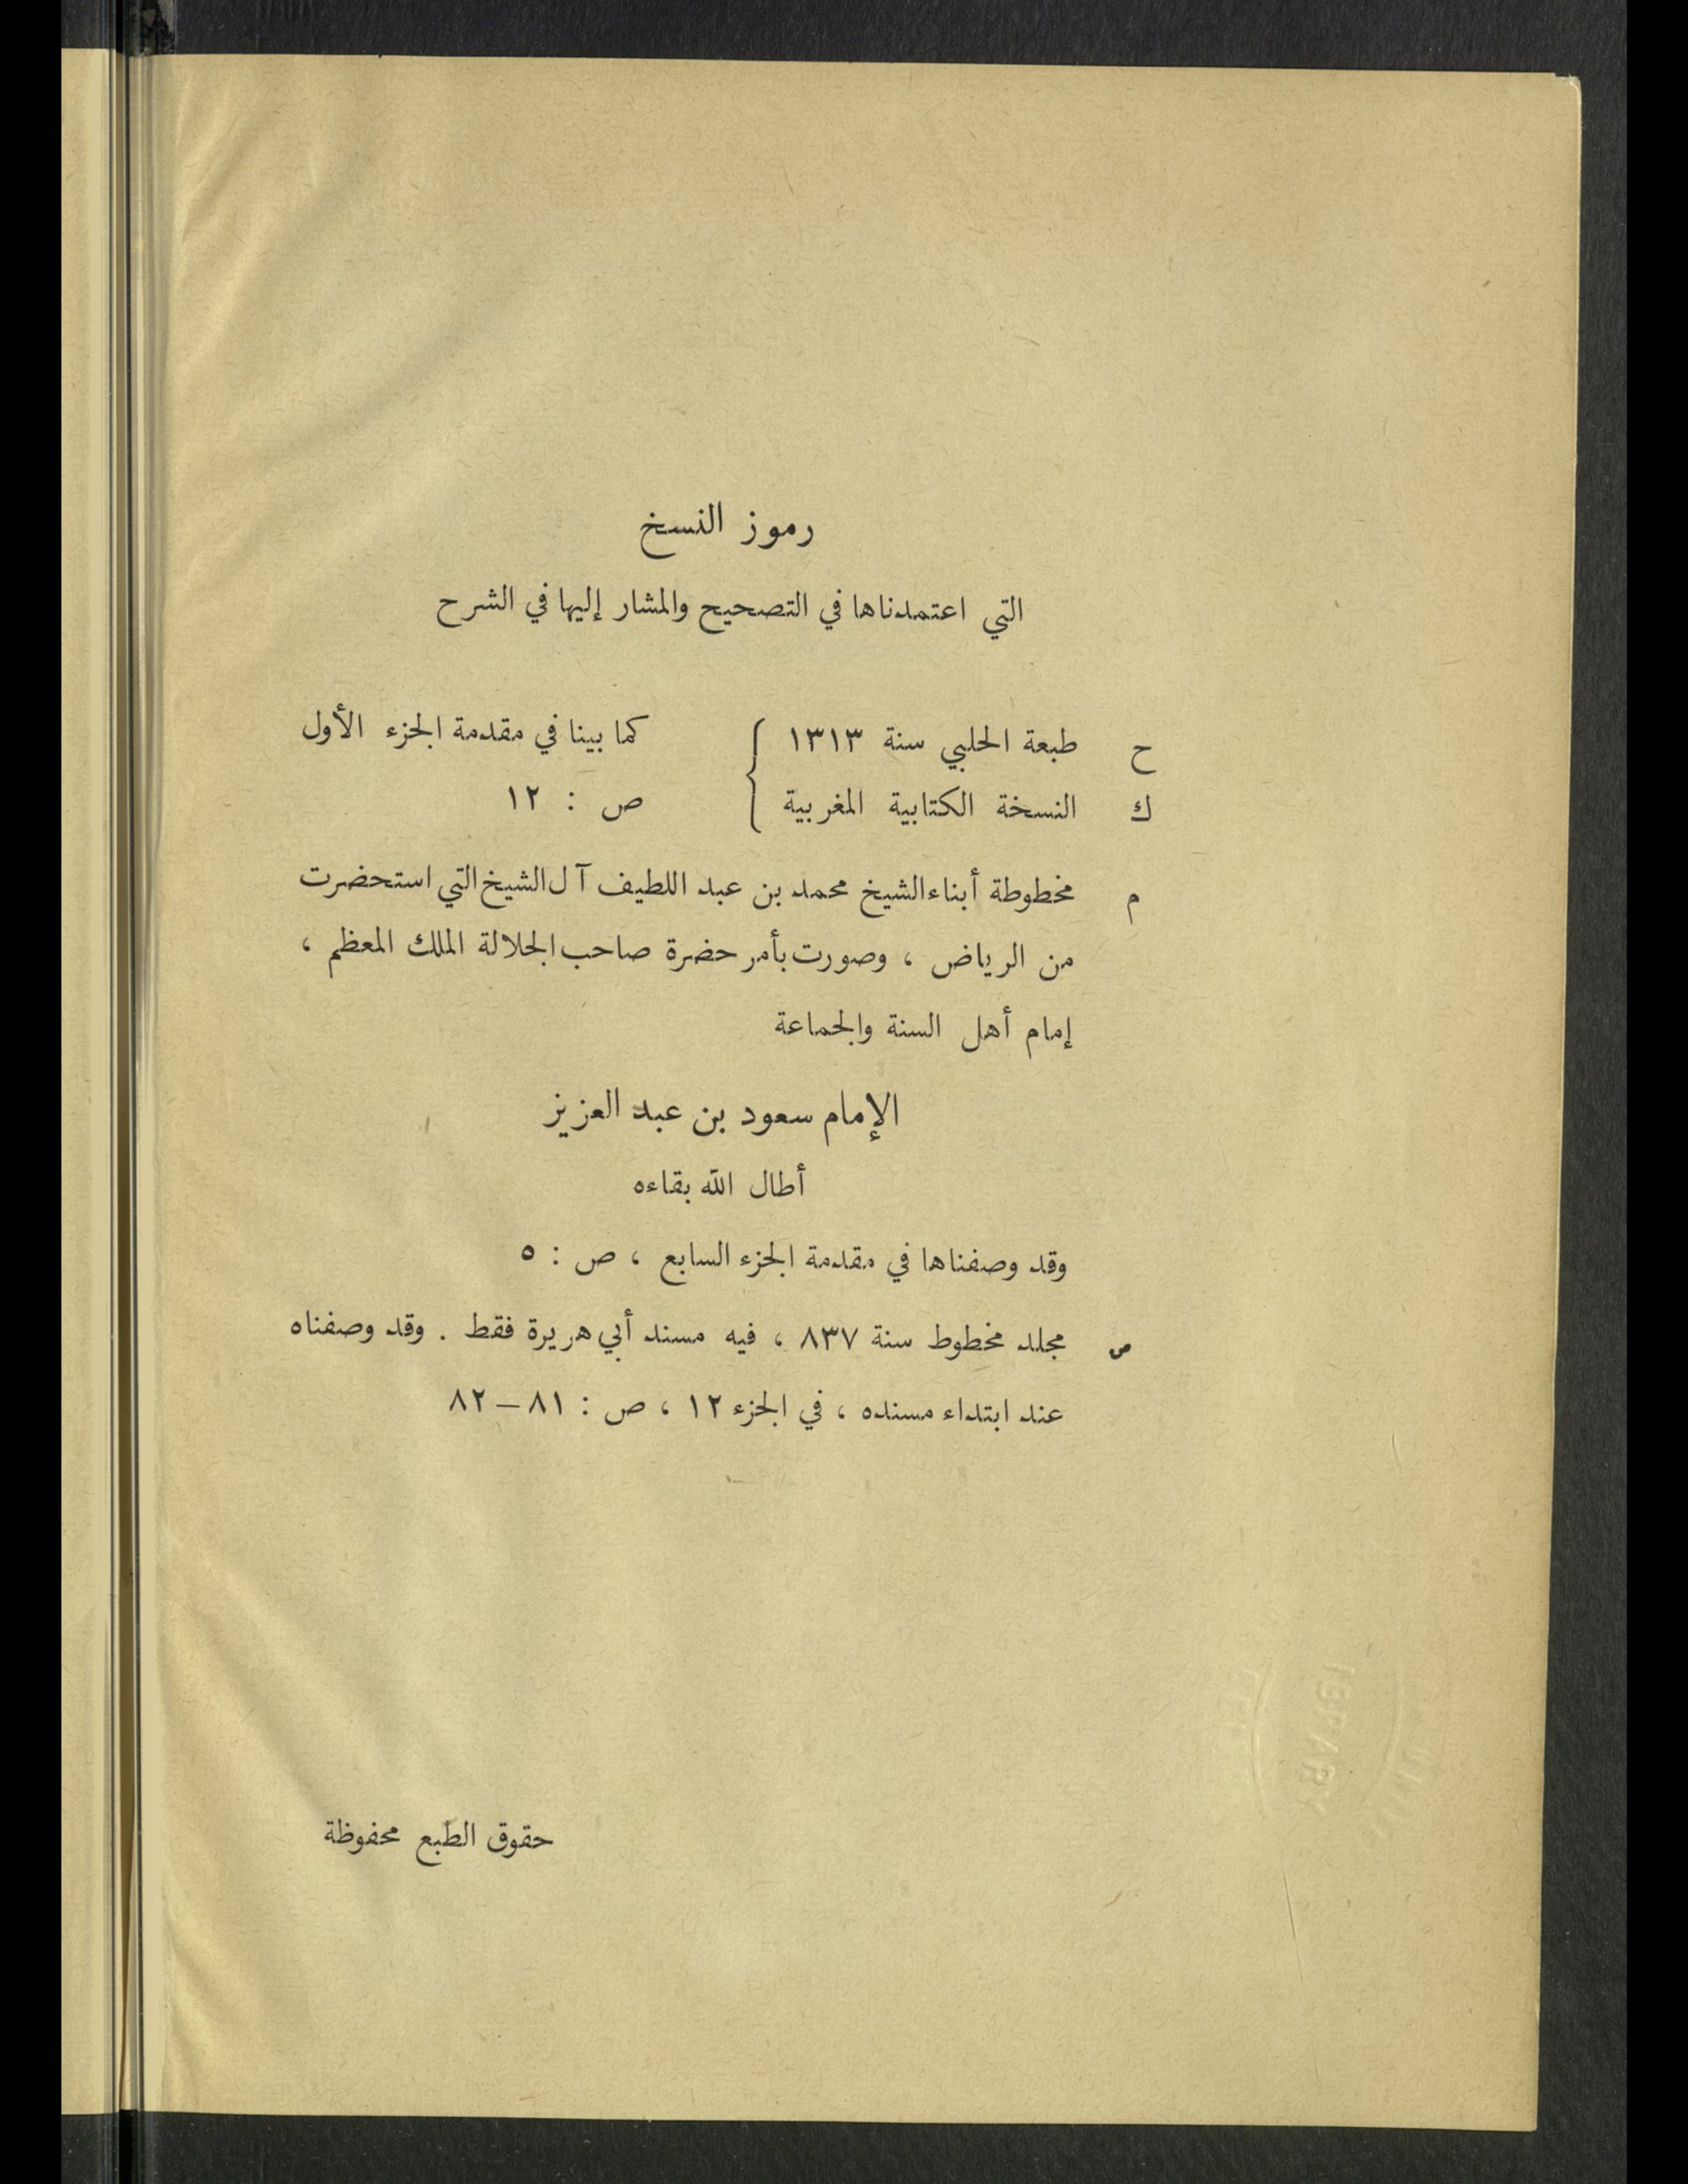 رموز النسخ
التي اعتمدناها في التصحيح والمشار إليها في الشرح
ح طبعة الحلبي سنة ١٣١٣ } كما بينا في مقدمة الجزء الأول
ك النسخة الكتابية المغربية } ص : ١٢
م مخطوطة أبناء الشيخ محمد بن عبد اللطيف آل الشيخ التي استحضرت
من الرياض ، وصورت بأمر حضرة صاحب الجلالة الملك المعظم ،
إمام أهل السنة والجماعة
الإمام سعود بن عبد العزيز
أطال الله بقاءه
وقد وصفناها في مقدمة الجزء السابع ، ص : ٥
ص مجلد مخطوط سنة ٨٣٧ ، فيه مسند أبي هريرة فقط . وقد وصفناه
عند ابتداء مسنده ، في الجزء ١٢ ، ص : ٨١ – ٨٢
حقوق الطبع محفوظة